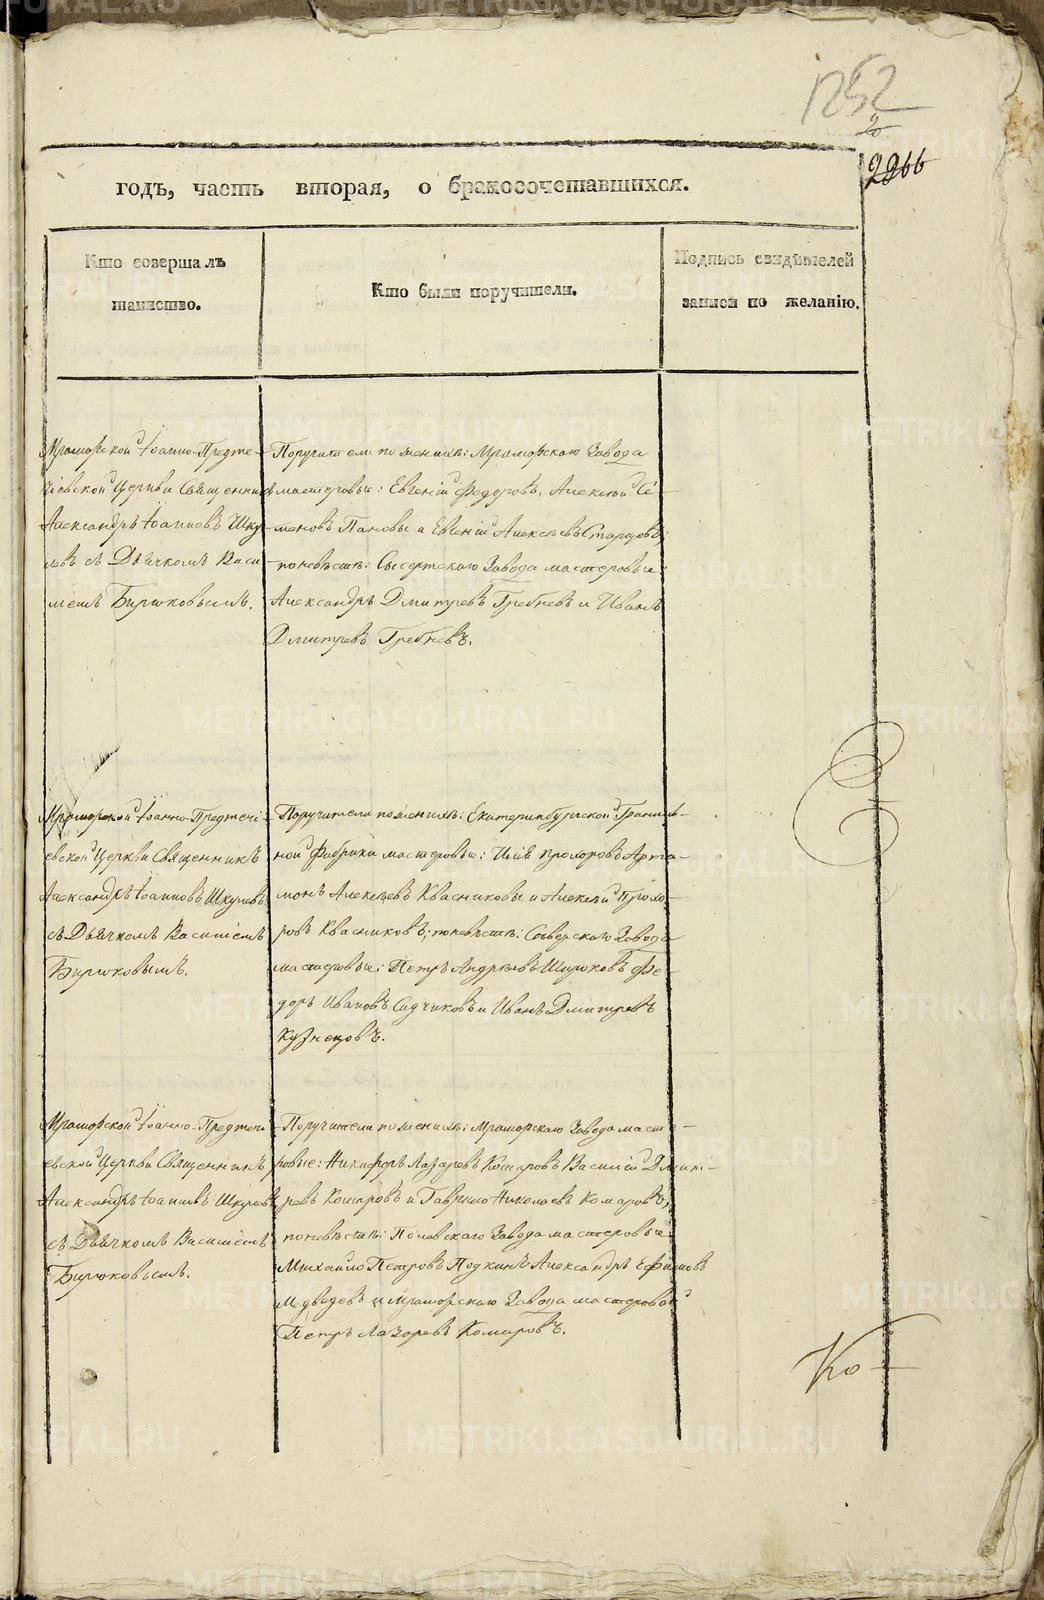 1252
20
2266
годъ, часть вторая, о бракосочетавшихся.
Кто совершалъ
таинство.
Кто были поручители.
Подпись свидѣтелей
записи по желанію.
Мраморской Іоанно-Предте-
чіевской Церкви Священникъ
Александръ Іоанновъ Шку-
левъ съ Дьячкомъ Васи-
ліемъ Бирюковымъ.
Поручители по женихѣ: Мраморскаго Завода
мастеровые: Евгеній Федоровъ, Алексѣй Се-
меновъ Пановы а Евгеній Алексѣевъ Старцовъ;
по невѣстѣ: Сысертскаго Завода мастеровые:
Александръ Дмитревъ Гребневъ и Иванъ
Дмитревъ Гребневъ.
Мраморской Іоанно-Предтечі-
евской Церкви Священникъ
Александръ Іоанновъ Шкулевъ
съ Дьячкомъ Василіемъ
Бирюковымъ.
Поручители по женихѣ: Екатеринбургской Граниль-
ной Фабрики мастеровые: Илія Прохоровъ Арта-
монъ Алексѣевъ Квасниковы и Алексѣй Прохо-
ровъ Квасниковъ; по невѣстѣ: Сѣверскаго Завода
мастеровые: Петръ Андреевъ Широковъ Фе-
доръ Ивановъ и Иванъ Дмитревъ
Кузнецовъ.
Мраморской Іоанно-Предтечі-
евской Церкви Священникъ
Александръ Іоанновъ Шкулевъ
съ Дьячкомъ Василіемъ
Бирюковымъ.
Поручители по женихѣ: Мраморскаго Завода масте-
ровые: Никифоръ Лазаревъ Комаровъ Василій Дмит-
ревъ Комаровъ и Гаврило Николаевъ Комаровъ;
по невѣстѣ: Полевскаго Завода мастеровые:
Михайло Петровъ Александръ Ефимовъ
Медведевъ и Мраморскаго Завода мастеровой
Петръ Лазаревъ Комаровъ.
Ко-
METRIKI.GASO-URAL.RU